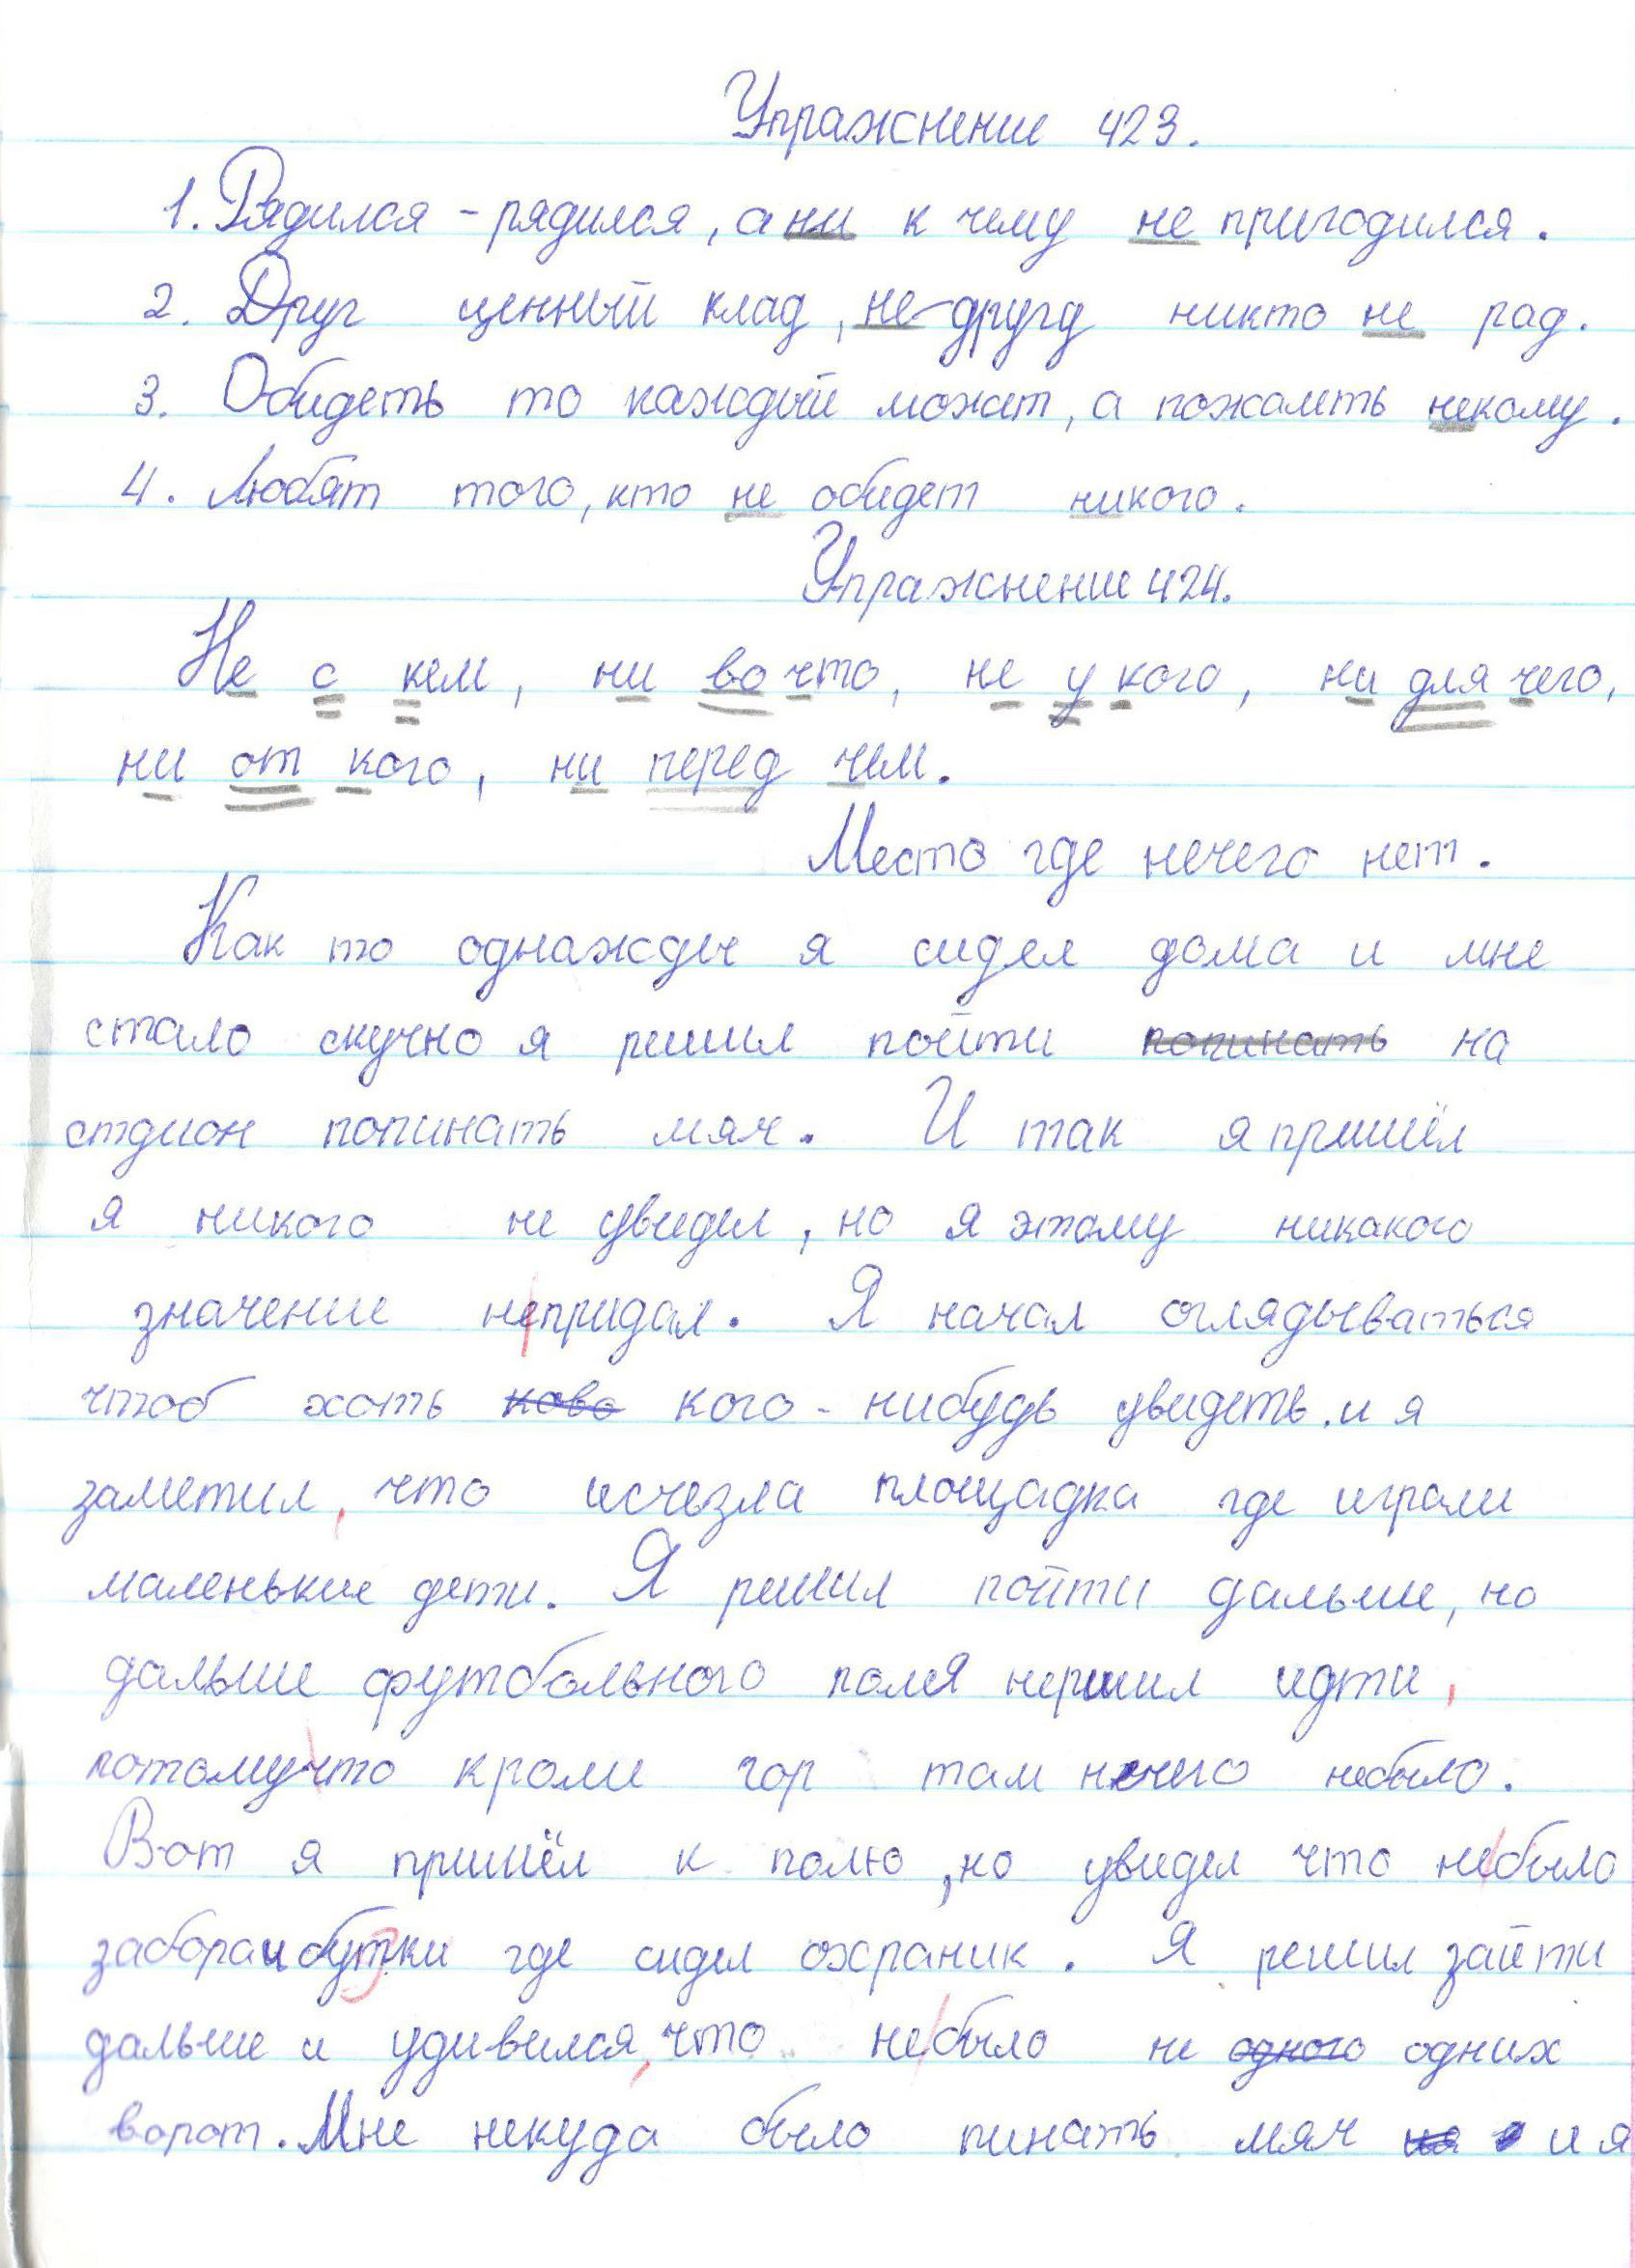 Упражнение 423.
1. Рядился - рядился, а ни к чему не пригодился.
2. Друг ценный клад, не другу никто не рад.
3. Обидеть то каждый может, а пожалеть некому.
4. Любят того, кто не обидет никого.
Упражнение 424.
Не с кем, ни во что, не у кого, ни для чего,
ни от кого, ни перед чем.
Место где нечего нет.
Как то однажды я сидел дома и мне
стало скучно я решил пойти попинать на
стдион попинать мяч. И так я пришёл
я никого не увидел, но я этому никакого
значение непридал. Я начал оглядываться
чтоб хоть ково кого-нибудь увидеть. и я
заметил, что исчезла площадка где играли
маленькие дети. Я решил пойти дальше, но
дальше футбольного поля нершил идти,
потомучто кроми гор там нечего небыло.
Вот я пришёл к полю, но увидел что небыло
забора и бутки где сидел охраник. Я решил зайти
дальше и удивился, что небыло не одного одних
ворот. Мне некуда было пинать мяч на и я